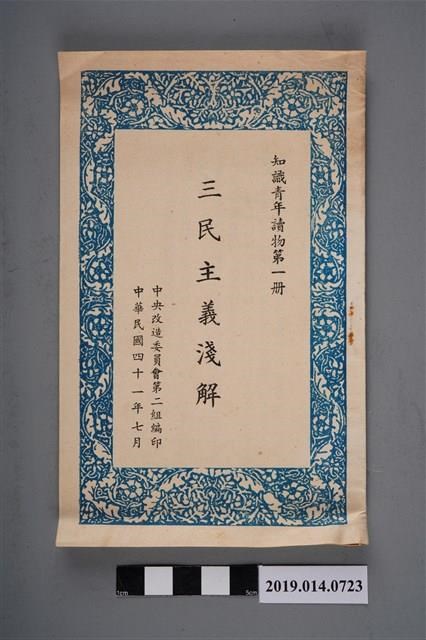 知識青年讀物第一册
三民主義淺解
中央改造委員會第二組編印
中華民國四十一年七月
1cm
5cm
2019.014.0723